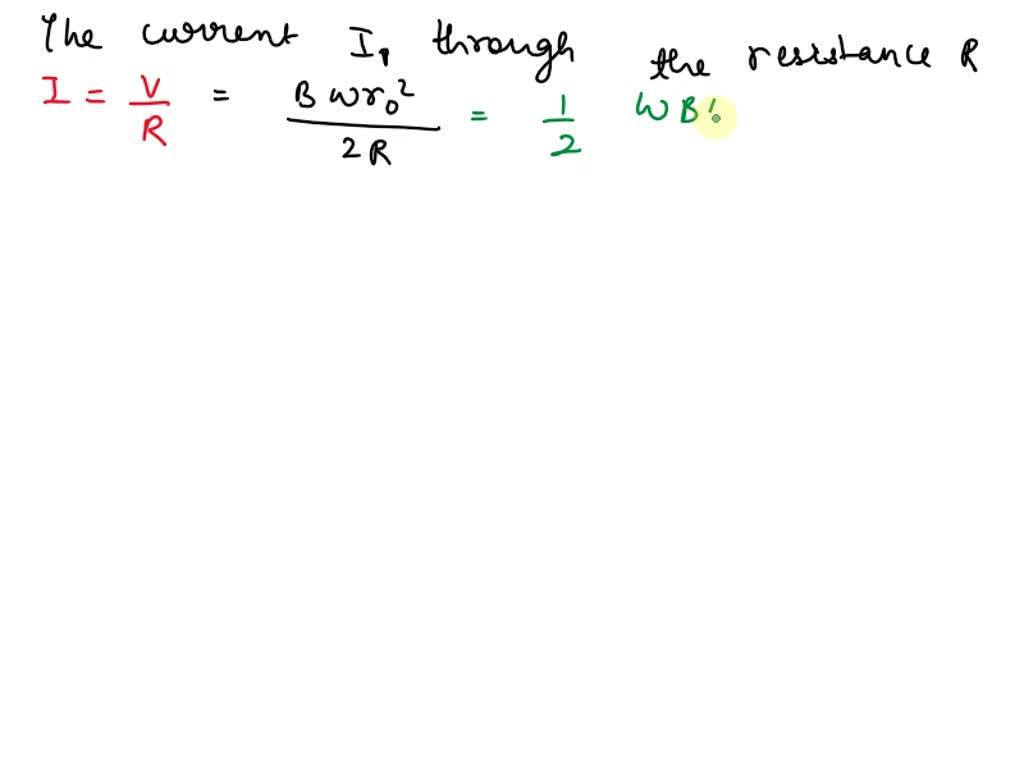 The current I, through the resistance R
I = V/R = B w r₀²/2R = 1/2 W B